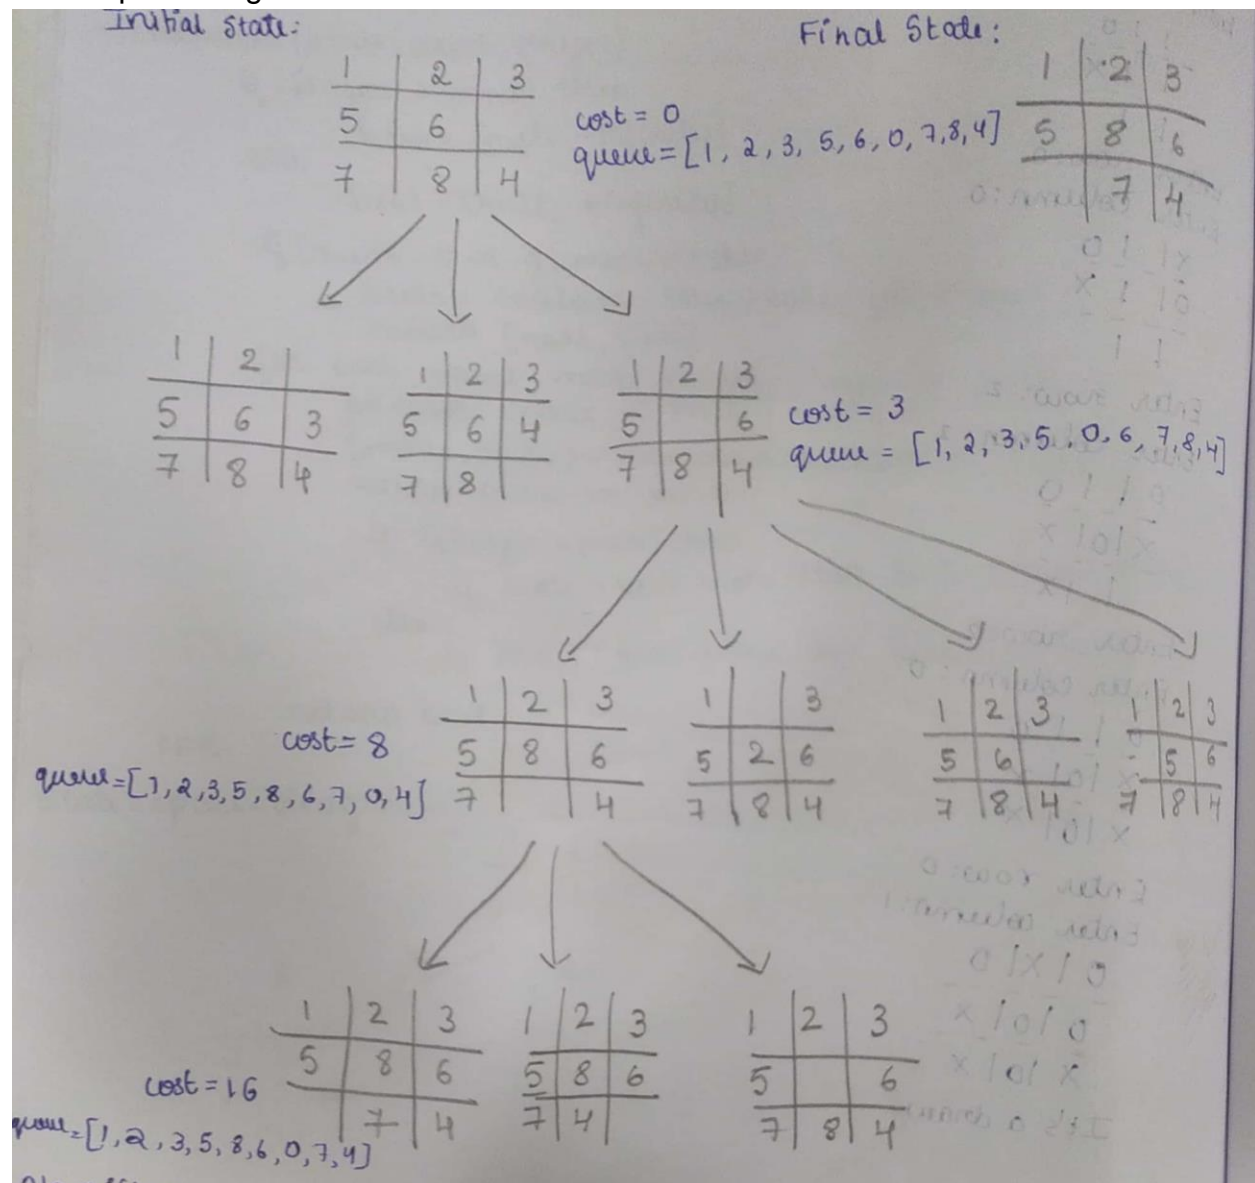 Initial State:
Final State:
1 2 3
5 6
7 8 4
cost = 0
queue = [1, 2, 3, 5, 6, 0, 7, 8, 4]
1 2 3
5 8 6
7 4
1 2
5 6 3
7 8 4
1 2 3
5 6 4
7 8
1 2 3
5 6
7 8 4
cost = 3
queue = [1, 2, 3, 5, 0, 6, 7, 8, 4]
cost = 8
queue = [1, 2, 3, 5, 8, 6, 7, 0, 4]
1 2 3
5 8 6
7 4
1 3
5 2 6
7 8 4
1 2 3
5 6
7 8 4
1 2 3
5 6
7 8 4
cost = 16
queue = [1, 2, 3, 5, 8, 6, 0, 7, 4]
1 2 3
5 8 6
7 4
1 2 3
5 8 6
7 4
1 2 3
5 6
7 8 4